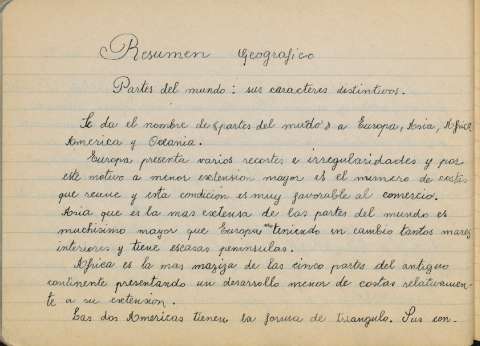 Resumen Geografico
Partes del mundo: sus caracteres distintivos.
Se da el nombre de "partes del mundo" a Europa, Asia, Africa
America y Oceania.
Europa presenta varios recortes e irregularidades y por
este motivo a menor extension mayor es el numero de costas
que reune y esta condicion es muy favorable al comercio.
Asia que es la mas extensa de las partes del mundo es
muchisimo mayor que Europa no teniendo en cambio tantos mares
interiores y tiene escasas peninsulas.
Africa es la mas maziza de las cinco partes del antiguo
continente presentando un desarrollo menor de costas relativamen-
te a su extension.
Las dos Americas tienen la forma de triangulo. Sus con-